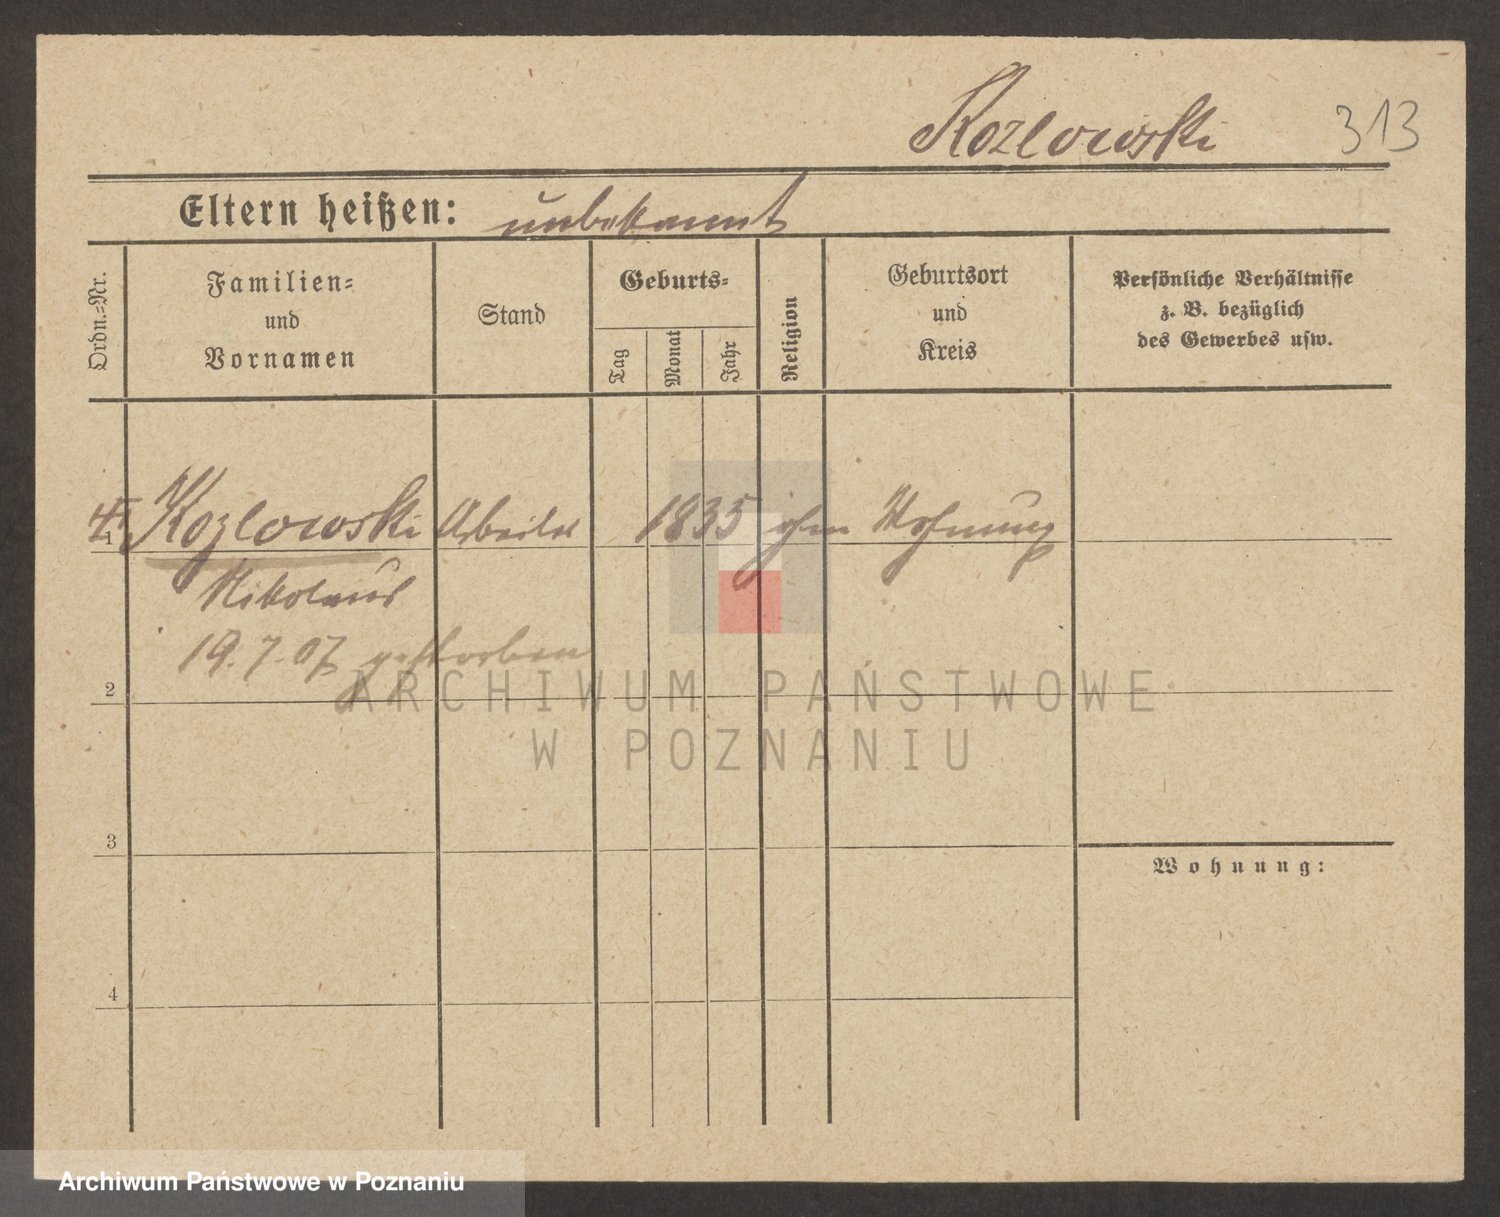 Kozlowski 313
Eltern heißen: unbekannt
Ordn.-Nr.
Familien-
und
Vornamen
Stand
Geburts-
Tag
Monat
Jahr
Religion
Geburtsort
und
Kreis
Persönliche Verhältnisse
z. B. bezüglich
des Gewerbes usw.
1 Kozlowski Arbeiter 1835 ohne Wohnung
Nikolaus
19.7.07 gestorben
2
3
4
Wohnung:
ARCHIWUM PAŃSTWOWE
W POZNANIU
Archiwum Państwowe w Poznaniu